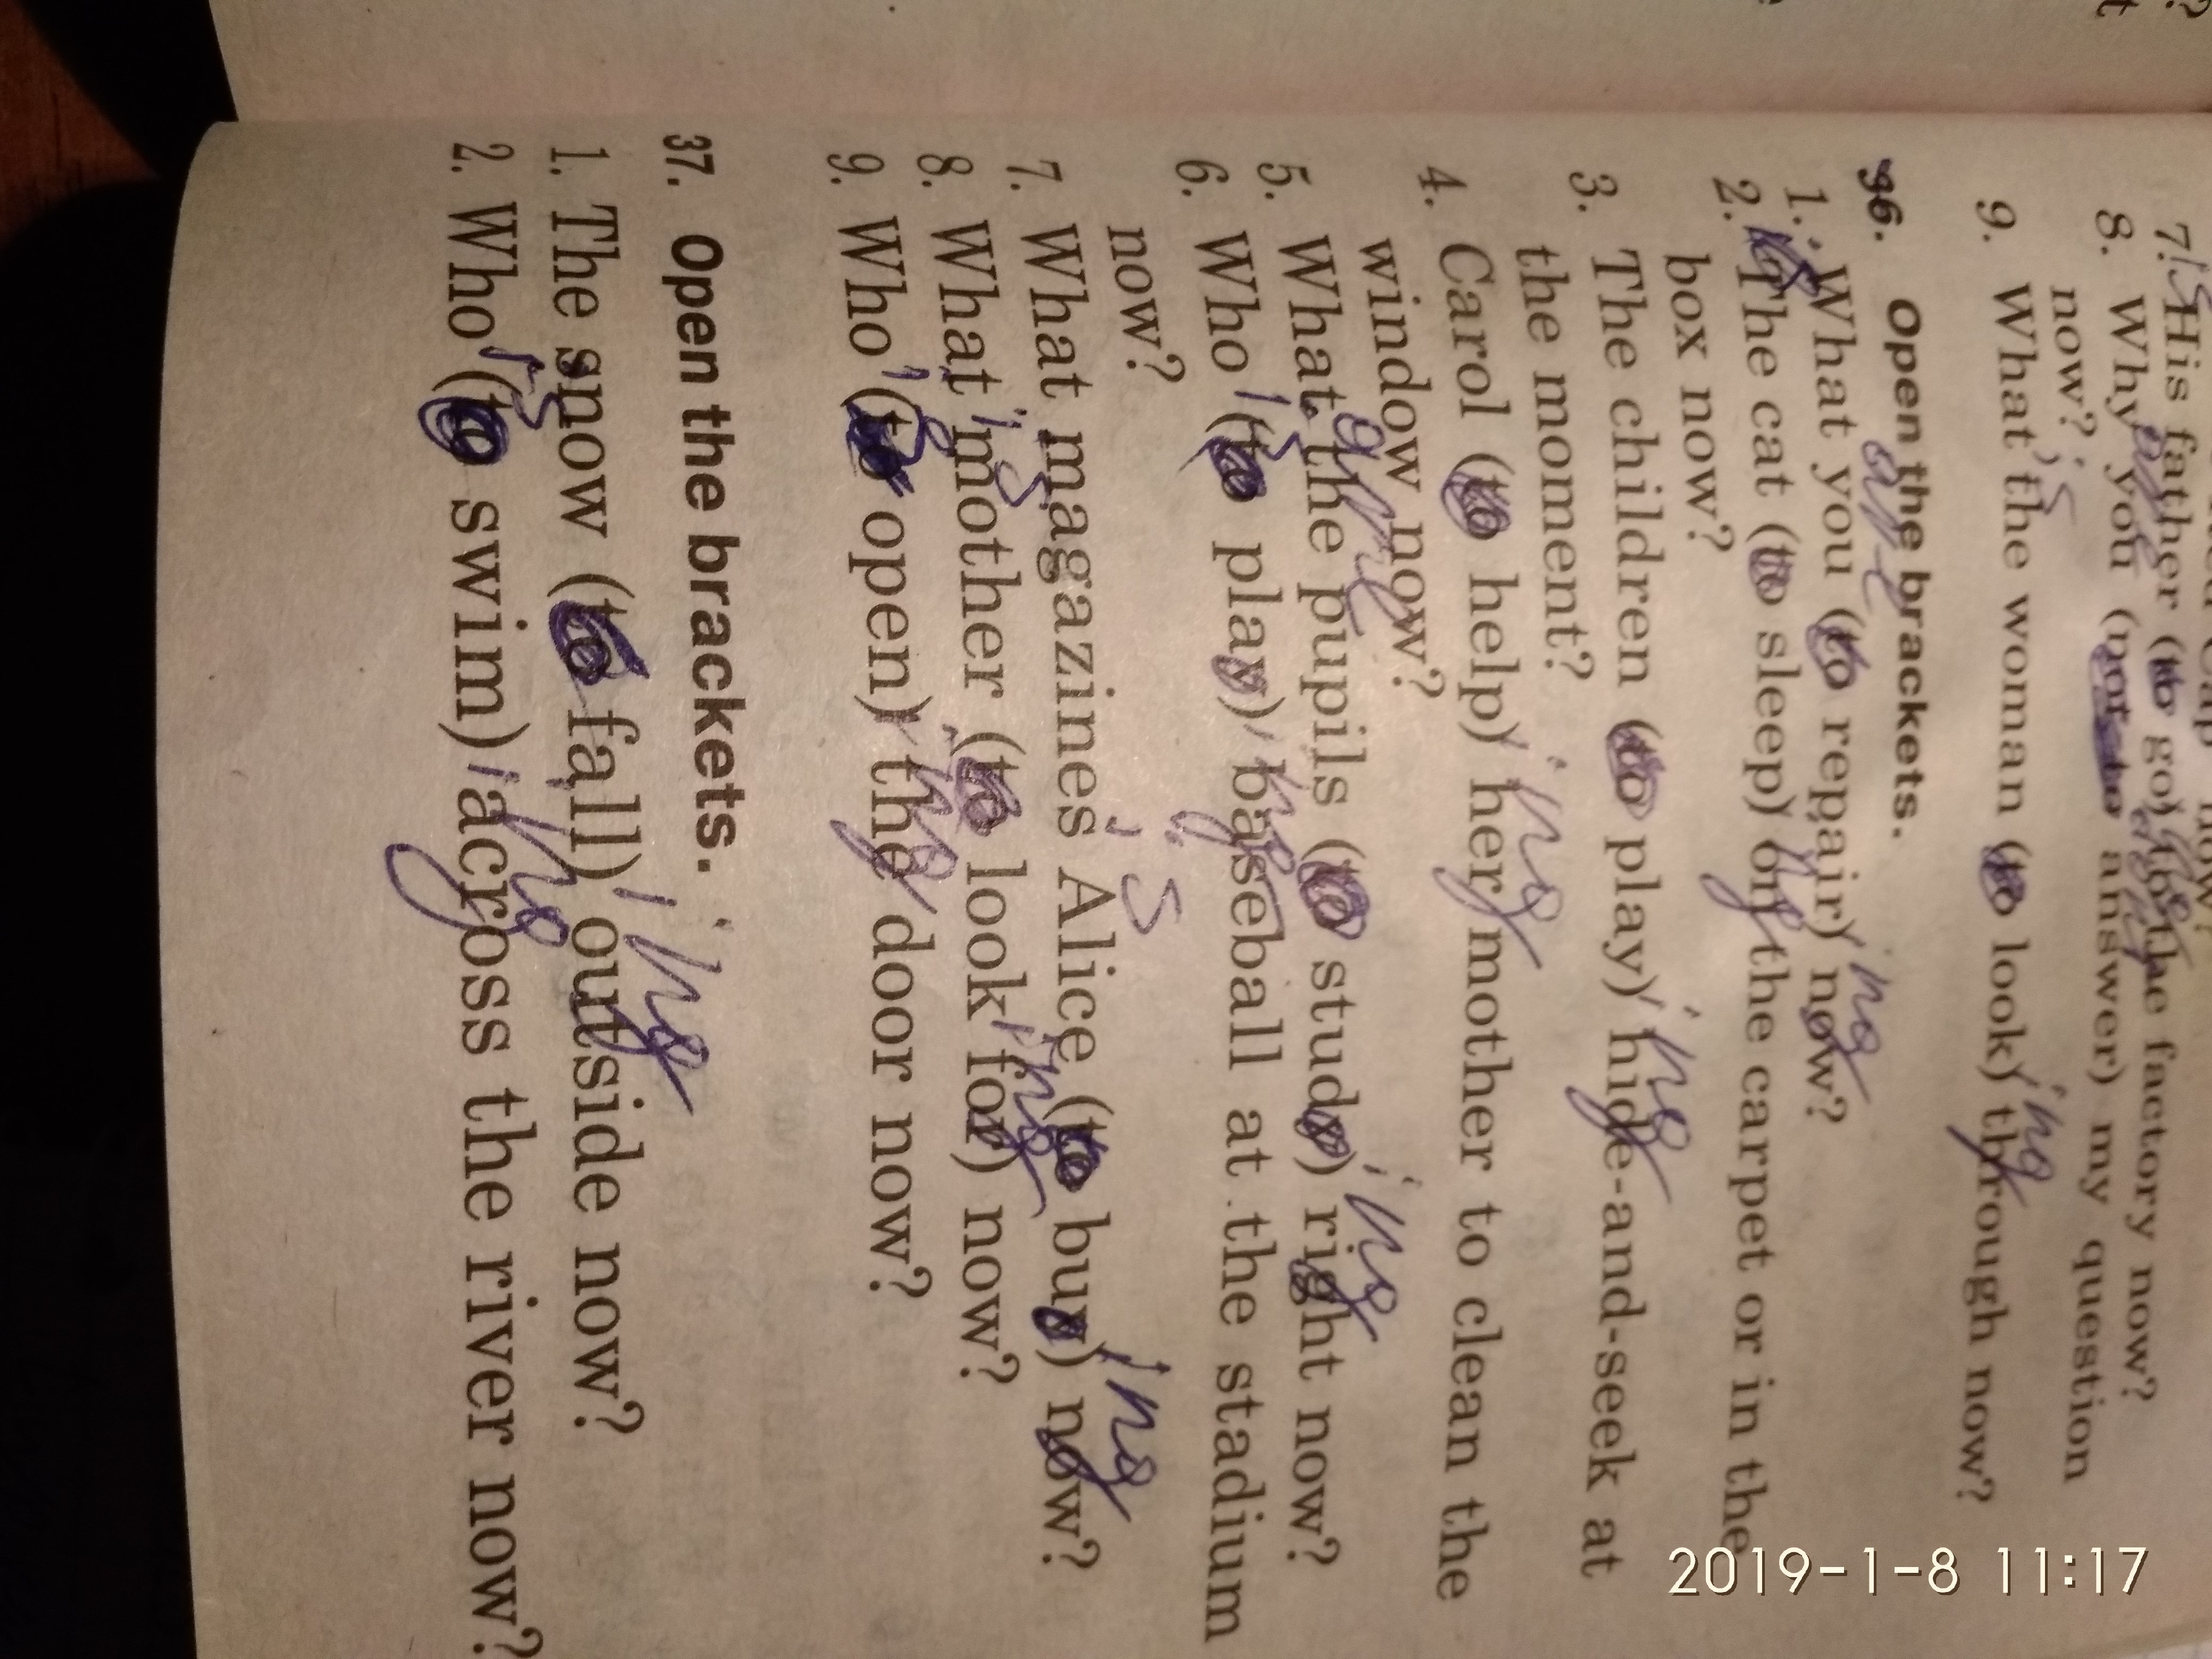 7. His father (to go) to the factory now?
8. Why you (not to answer) my question
now?
9. What the woman (to look) through now?
36. Open the brackets.
1. What you (to repair) now?
2. The cat (to sleep) on the carpet or in the
box now?
3. The children (to play) hide-and-seek at
the moment?
4. Carol (to help) her mother to clean the
window now?
5. What the pupils (to study) right now?
6. Who (to play) baseball at the stadium
now?
7. What magazines Alice (to buy) now?
8. What mother (to look for) now?
9. Who (to open) the door now?
37. Open the brackets.
1. The snow (to fall) outside now?
2. Who (to swim) across the river now?
are
ing
is
's
2019-1-8 11:17